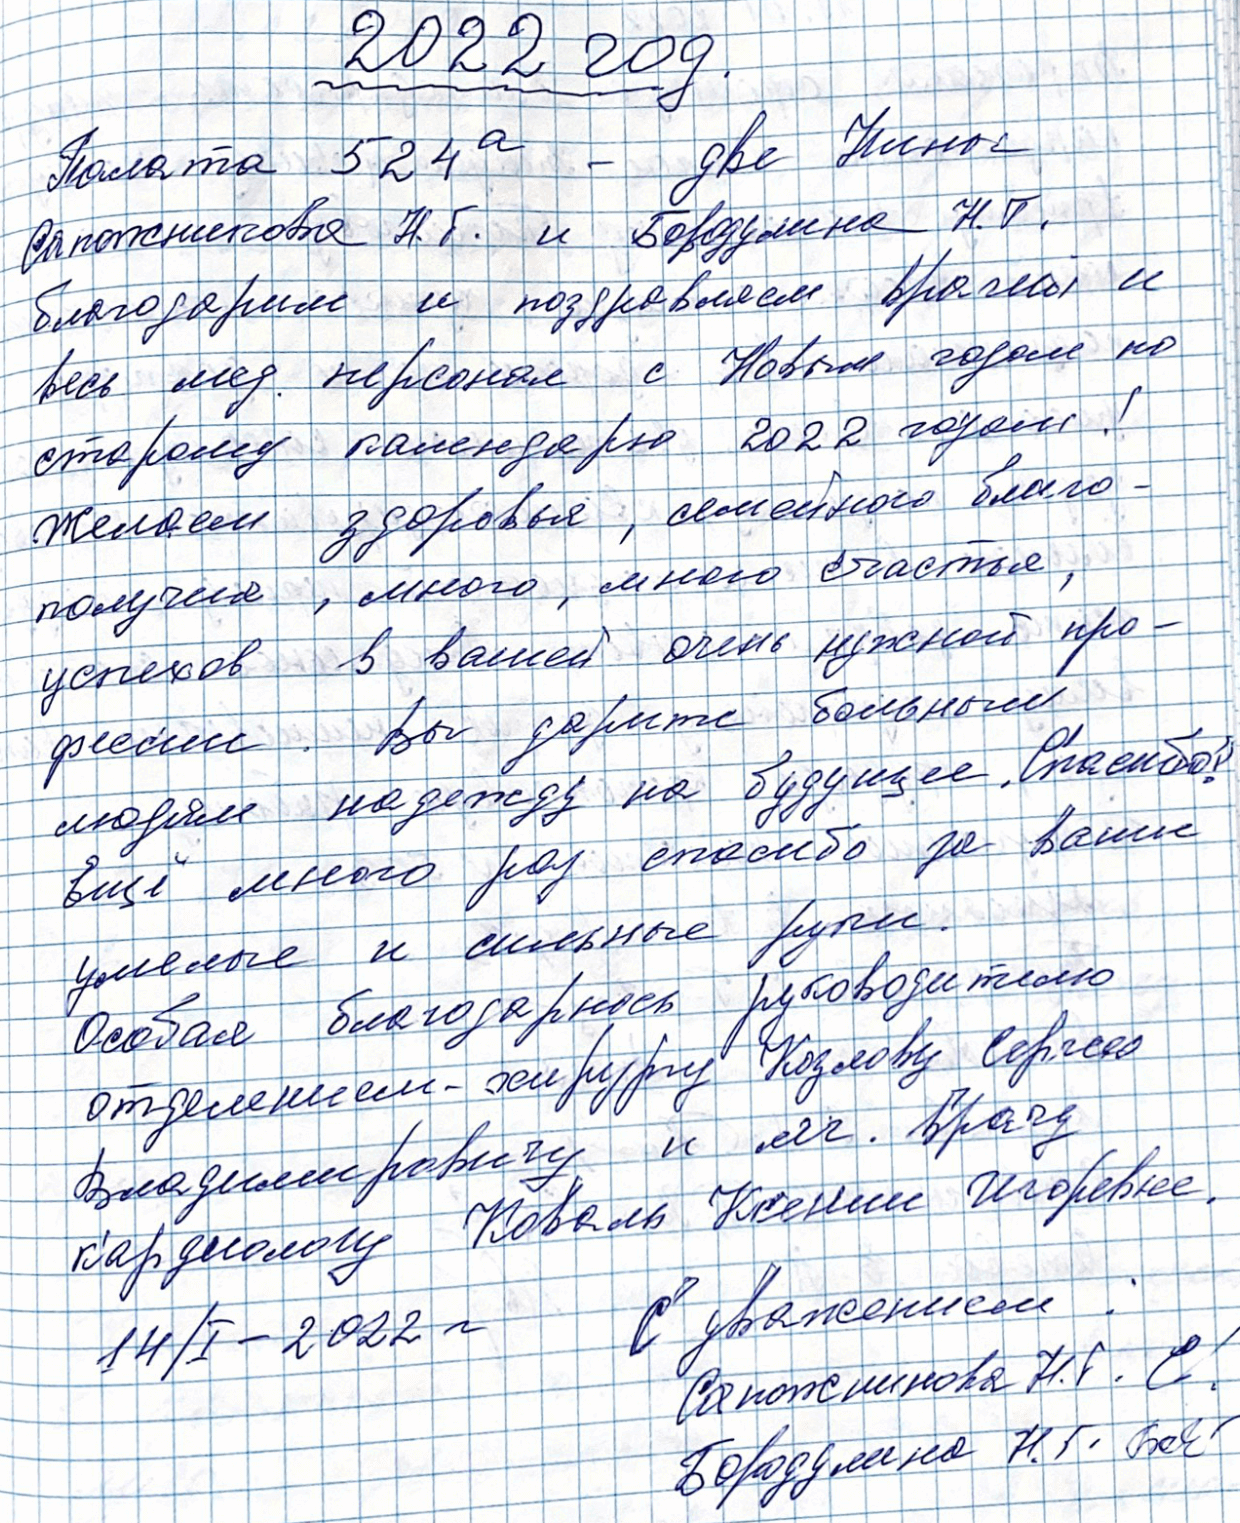 2022 год.
Палата 524а - две Нины
Сапожникова Н.Г. и Бородулина Н.Г.
благодарим и поздравляем врачей и
весь мед. персонал с Новым годом по
старому календарю 2022 годом!
Желаем здоровья, семейного благо-
получия, много, много счастья,
успехов в вашей очень нужной про-
фессии. Вы дарите больным
людям надежду на будущее. Спасибо!
Ещё много раз спасибо за ваши
умелые и сильные руки.
Особая благодарность руководителю
отделением - хирургу Козлову Сергею
Владимировичу и леч. врачу
кардиологу Коваль Ксении Игоревне.
14/I - 2022 г С уважением:
Сапожникова Н.Г.
Бородулина Н.Г.